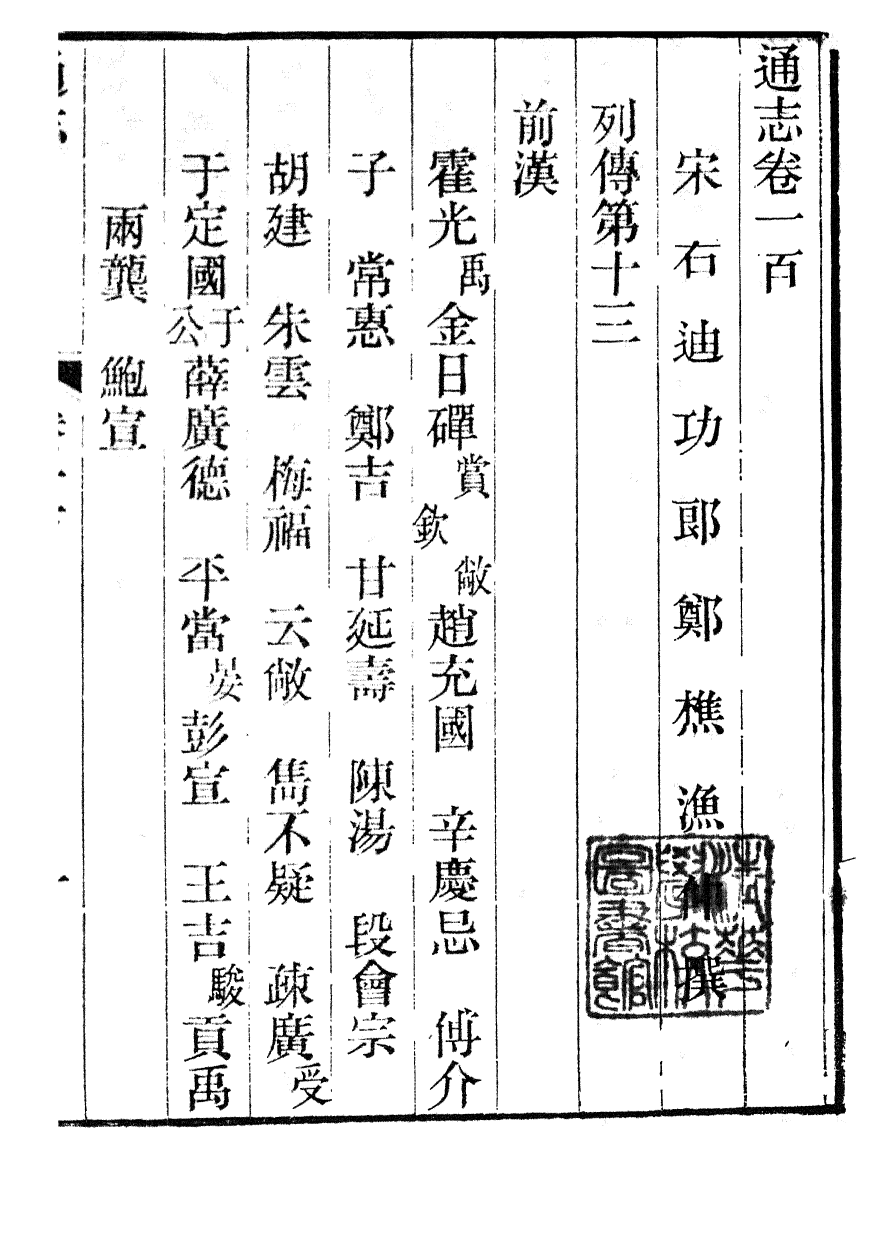 通志卷一百
宋右迪功郎鄭樵漁仲撰
列傳第十三
前漢
霍光禹金日磾賞欽敞趙充國辛慶忌傅介
子常惠鄭吉甘延壽陳湯段會宗
胡建朱雲梅福云敞雋不疑疎廣受
于定國于公薛廣德平當晏彭宣王吉駿貢禹
兩龔鮑宣